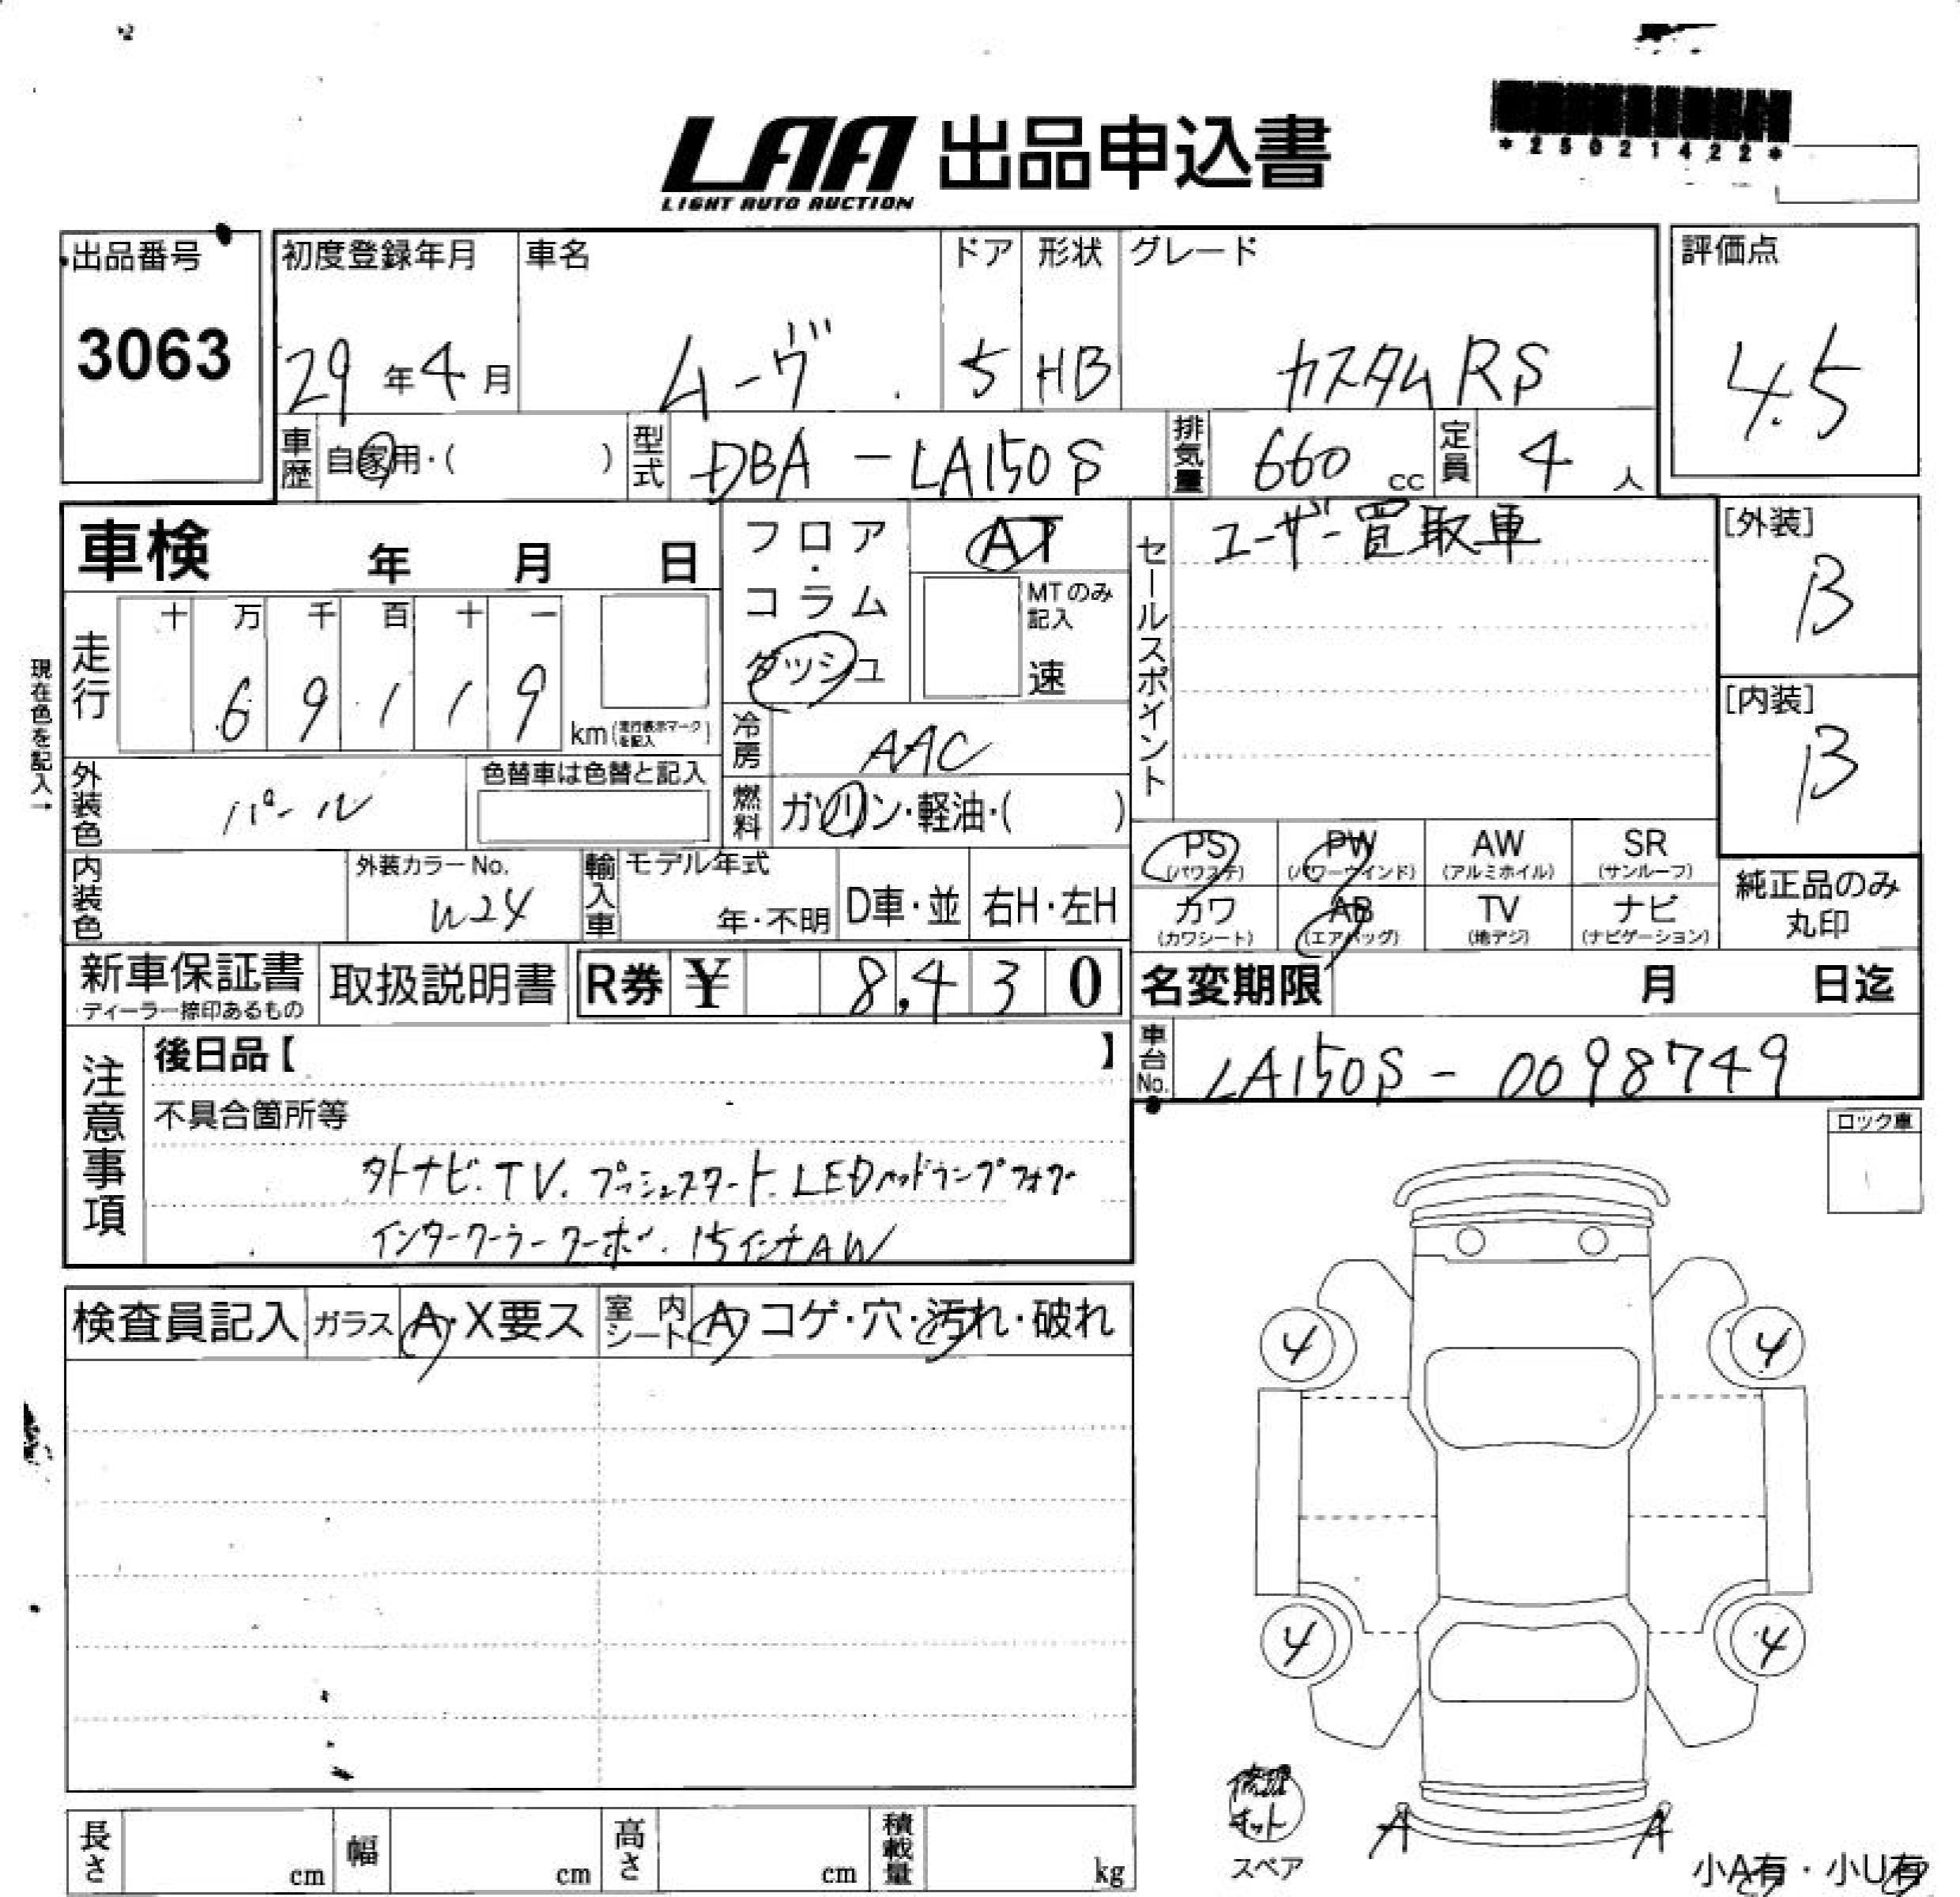 *25021422*
LAA 出品申込書
LIGHT AUTO AUCTION
出品番号 初度登録年月 車名 ドア 形状 グレード 評価点
3063 29年4月 ムーヴ 5 HB カスタムRS 4.5
車歴 自家用・( ) 型式 DBA-LA150S 排気量 660cc 定員 4人
車検 年 月 日
フロア・コラム ダッシュ
AT
MTのみ記入
速
セールスポイント
ユーザー買取車
[外装]
B
[内装]
B
現在色を記入→
走行 十 万 千 百 十 一
6 9 1 1 9 km(走行表示マークを記入)
冷房 AAC
外装色 パール 色替車は色替と記入
燃料 ガソリン・軽油・( )
PS (パワステ) PW (パワーウインド) AW (アルミホイル) SR (サンルーフ)
カワ (カワシート) AB (エアバッグ) TV (地デジ) ナビ (ナビゲーション)
純正品のみ
丸印
内装色 外装カラーNo. W24 輸入車 モデル年式 年・不明 D車・並 右H・左H
新車保証書 取扱説明書 R券 ¥ 8,430 名変期限 月 日迄
ディーラー捺印あるもの
注意事項
後日品【 】
車台No. LA150S-0098749
不具合箇所等
外ナビ.TV.プッシュスタート.LEDヘッドランプフォグ
インタークーラーターボ.15インチAW
ロック車
検査員記入 ガラス A・X要ス 室内シート A コゲ・穴・汚れ・破れ
4 4
4 4
修理
キット
スペア
A A
小A有・小U有
長さ cm 幅 cm 高さ cm 積載量 kg